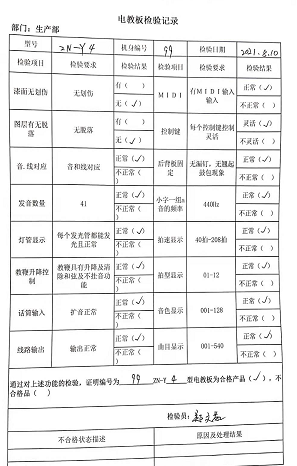 电教板检验记录
部门：生产部
型号 ZN-Y4 机身编号 99 检验日期 2021.8.10
检验项目 检验要求 检验结果 检验项目 检验要求 检验结果
漆面无划伤 无划伤 有（ ） 无（✓） MIDI 有MIDI输入输入 正常（✓） 不正常（ ）
图层有无脱落 无脱落 有（ ） 无（✓） 控制键 每个控制键控制灵活 灵活（✓） 不灵活（ ）
音,线对应 音和线对应 正常（✓） 不正常（ ） 后背板固定 无漏钉、无翘起鼓包现象 正常（✓） 不正常（ ）
发音数量 41 正常（✓） 不正常（ ） 小字一组a音的频率 440Hz 正常（✓） 不正常（ ）
灯管显示 每个发光管都能发光且正常 正常（✓） 不正常（ ） 拍速显示 40拍-208拍 正常（✓） 不正常（ ）
教鞭升降控制 教鞭具有升降及清除和弦及不挂音功能 正常（✓） 不正常（ ） 拍型显示 01-12 正常（✓） 不正常（ ）
话筒输入 扩音正常 正常（✓） 不正常（ ） 音色显示 001-128 正常（✓） 不正常（ ）
线路输出 输出正常 正常（✓） 不正常（ ） 曲目显示 001-540 正常（✓） 不正常（ ）
通过对上述功能的检验，证明编号为 99 ZN-Y 4 型电教板为合格产品（✓），不
合格品（ ）
检验员：
不合格状态描述 原因及处理结果